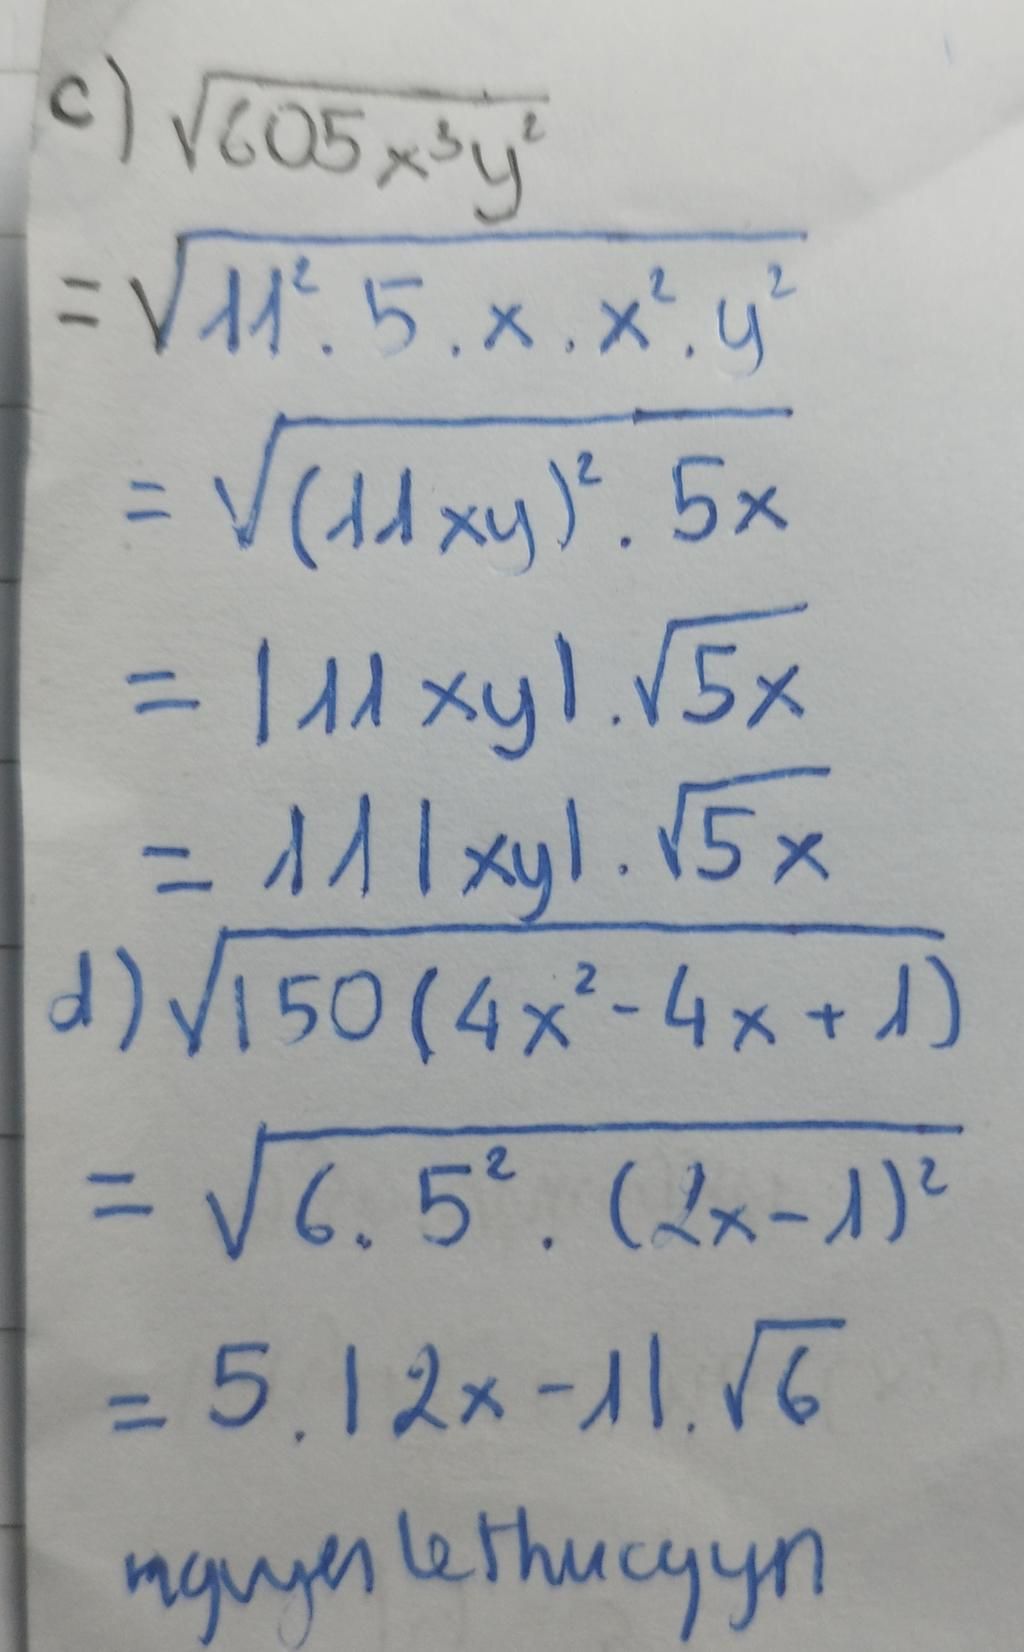 c) √605x³y²
= √11² . 5 . x . x² . y²
= √(11xy)² . 5x
= |11xy| . √5x
= 11|xy| . √5x
d) √150(4x² - 4x + 1)
= √6 . 5² . (2x - 1)²
= 5 . |2x - 1| . √6
nguyenlethucyyn